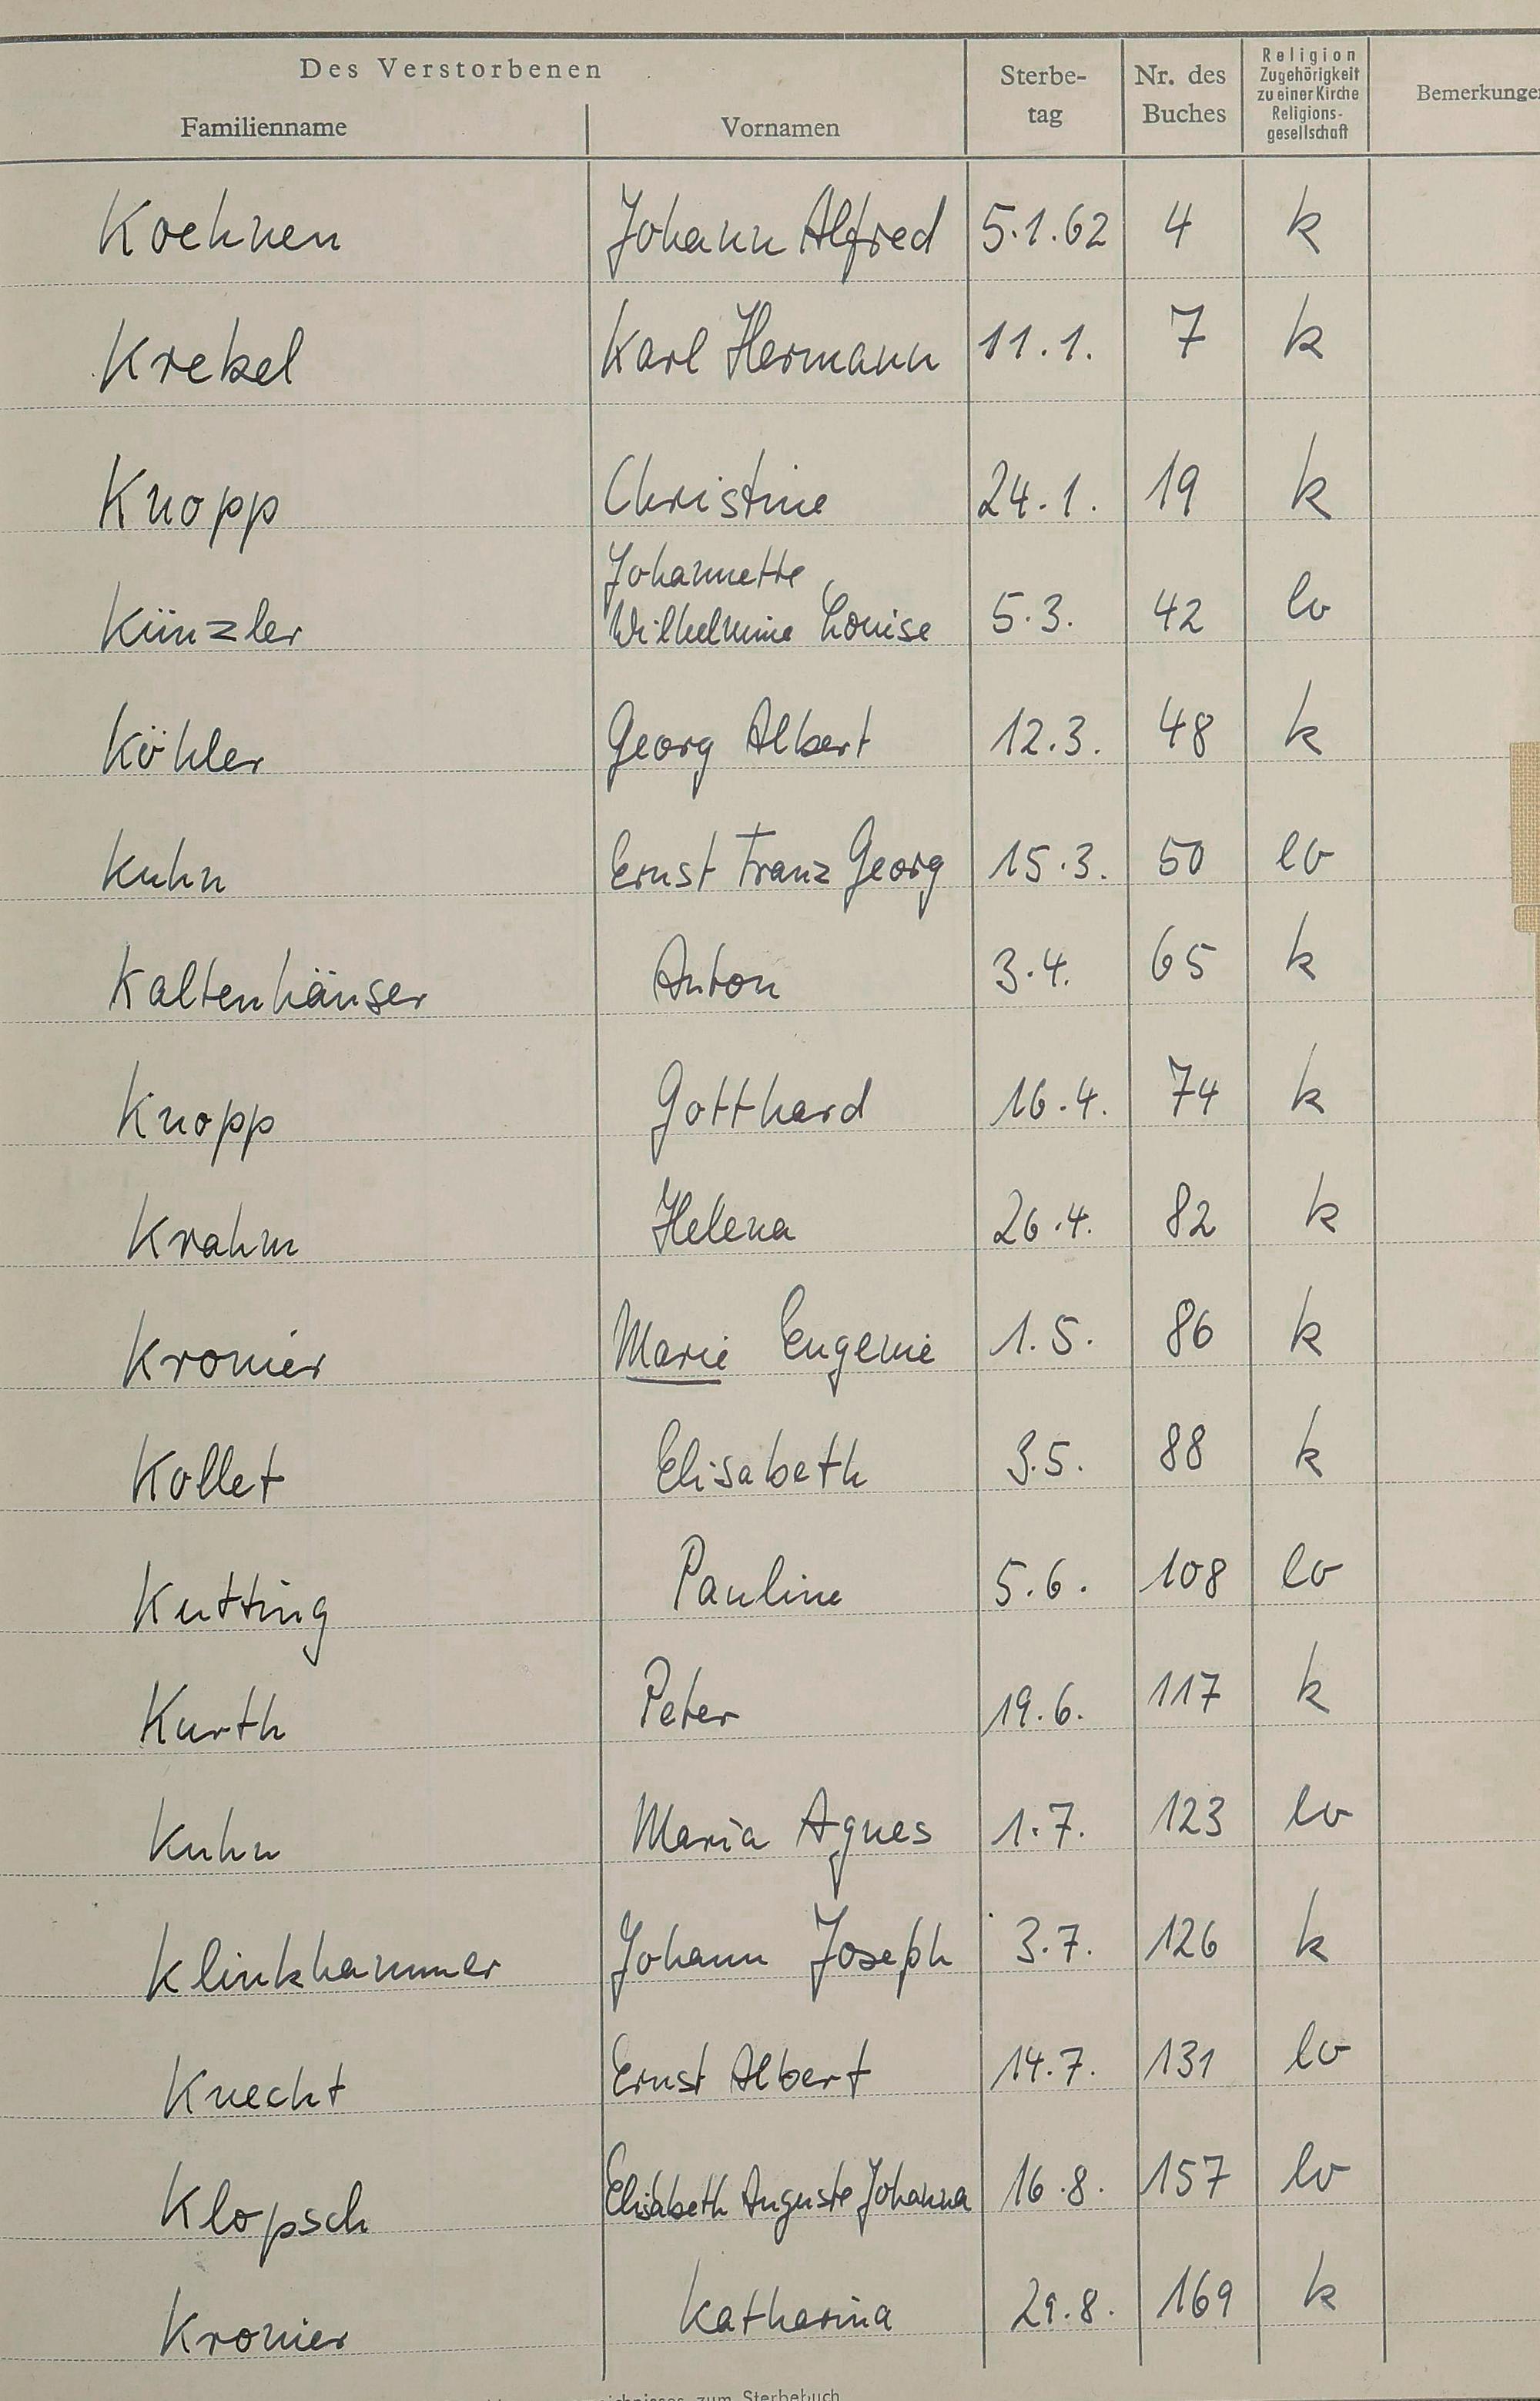 Des Verstorbenen
Familienname Vornamen Sterbe-
tag Nr. des
Buches Religion
Zugehörigkeit
zu einer Kirche
Religions-
gesellschaft Bemerkungen
Koehnen Johann Alfred 5.1.62 4 k
Krekel Karl Hermann 11.1. 7 k
Knopp Christine 24.1. 19 k
Johannette
Künzler Wilhelmine Louise 5.3. 42 ev
Köhler Georg Albert 12.3. 48 k
Kuhn Ernst Franz Georg 15.3. 50 ev
Kaltenhäuser Anton 3.4. 65 k
Knopp Gotthard 16.4. 74 k
Krahm Helena 26.4. 82 k
Kronier Marie Eugenie 1.5. 86 k
Kollet Elisabeth 3.5. 88 k
Kutting Pauline 5.6. 108 ev
Kurth Peter 19.6. 117 k
Kuhn Maria Agnes 1.7. 123 ev
Klinkhammer Johann Joseph 3.7. 126 k
Knecht Ernst Albert 14.7. 131 ev
Klopsch Elisabeth Auguste Johanna 16.8. 157 ev
Kronier Katharina 29.8. 169 k
zum Sterbebuch